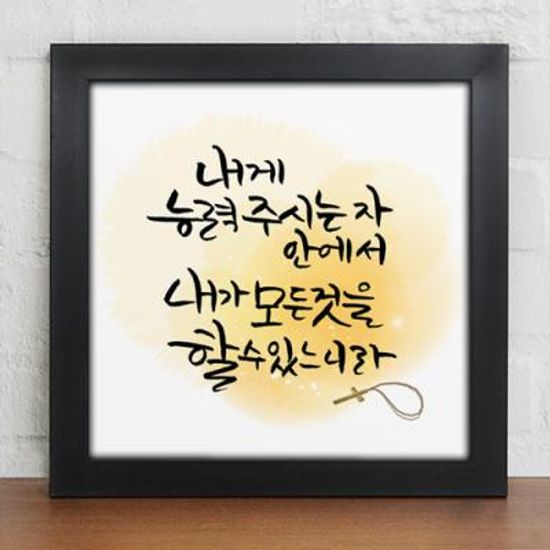 내게
능력 주시는 자
안에서
내가 모든것을
할 수 있느니라